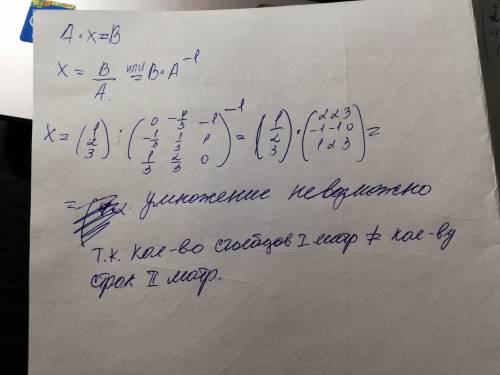 A · X = B
X = B/A или = B · A⁻¹
X = (1 2 3) · (0 -1/3 -1; -1/3 1/3 1; 1/3 2/3 0)⁻¹ = (1 2 3) · (2 2 3; -1 -1 0; 1 2 3) =
= умножение невозможно
т.к. кол-во столбцов I матр ≠ кол-ву
строк II матр.